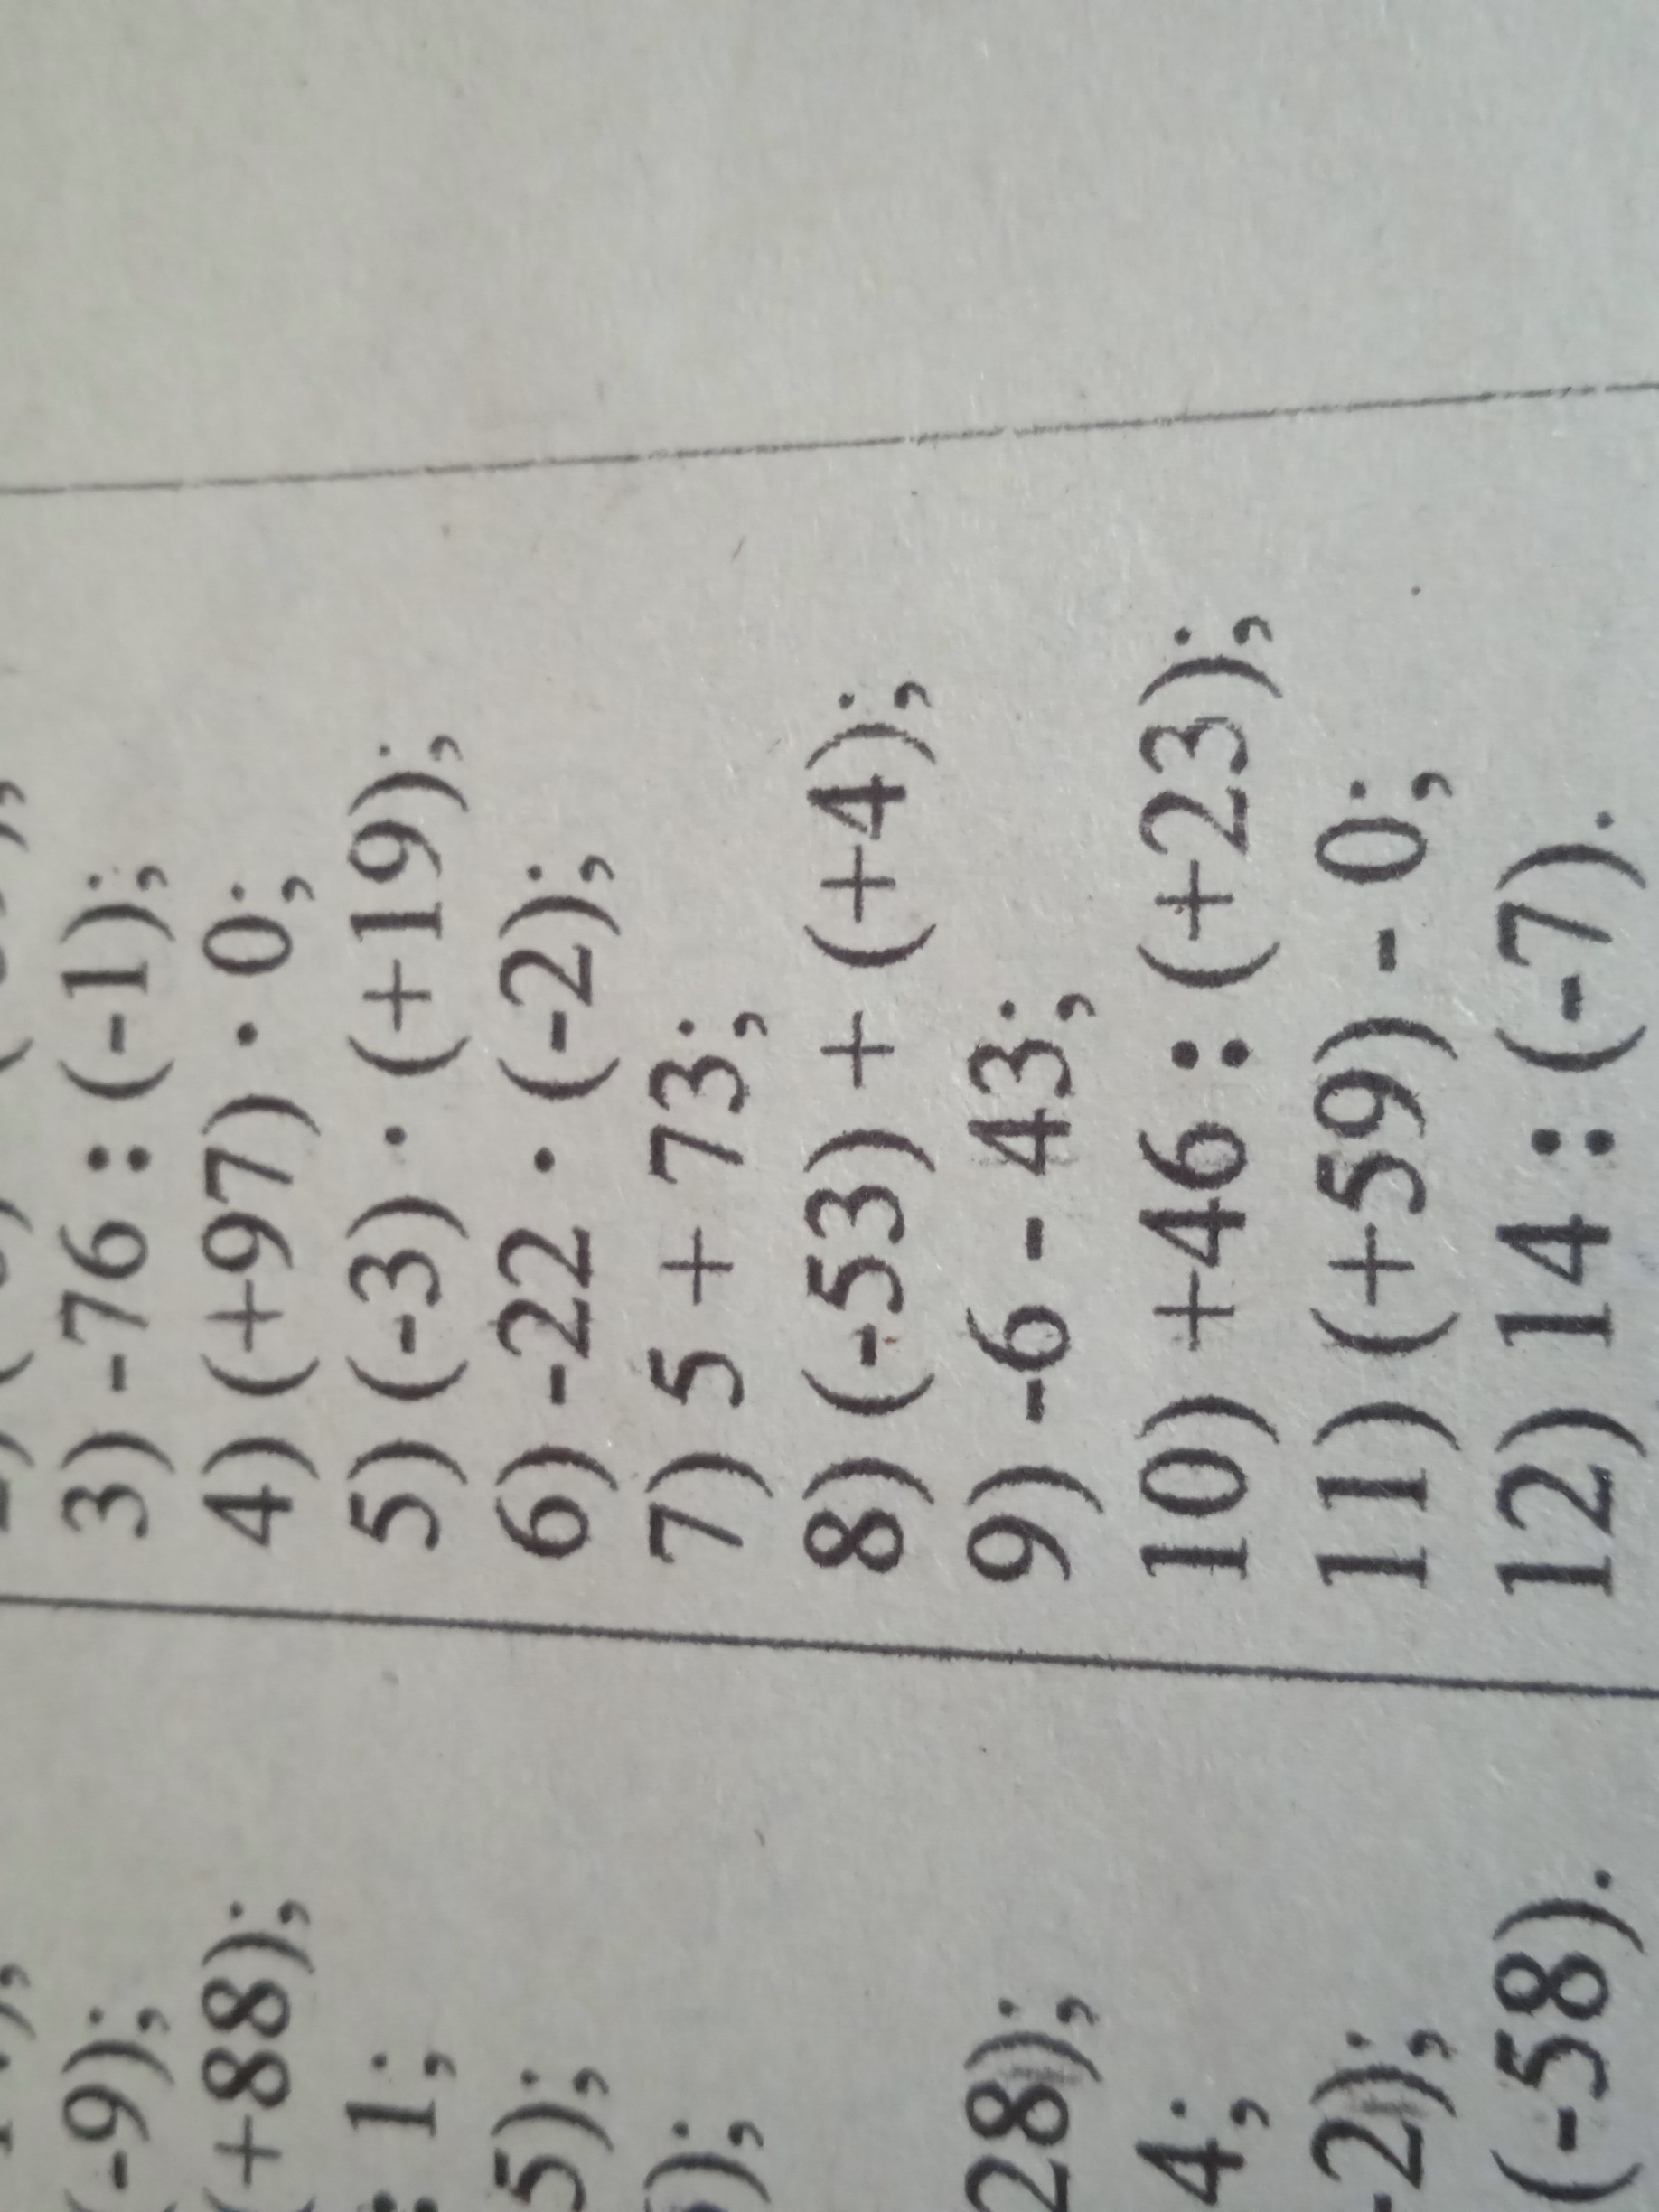 3) -76 : (-1);
4) (+97) · 0;
5) (-3) · (+19);
6) -22 · (-2);
7) 5 + 73;
8) (-53) + (+4);
9) -6 - 43;
10) +46 : (+23);
11) (+59) - 0;
12) 14 : (-7).
(-9);
(+88);
: 1;
5);
);
28);
4;
-2);
(-58).